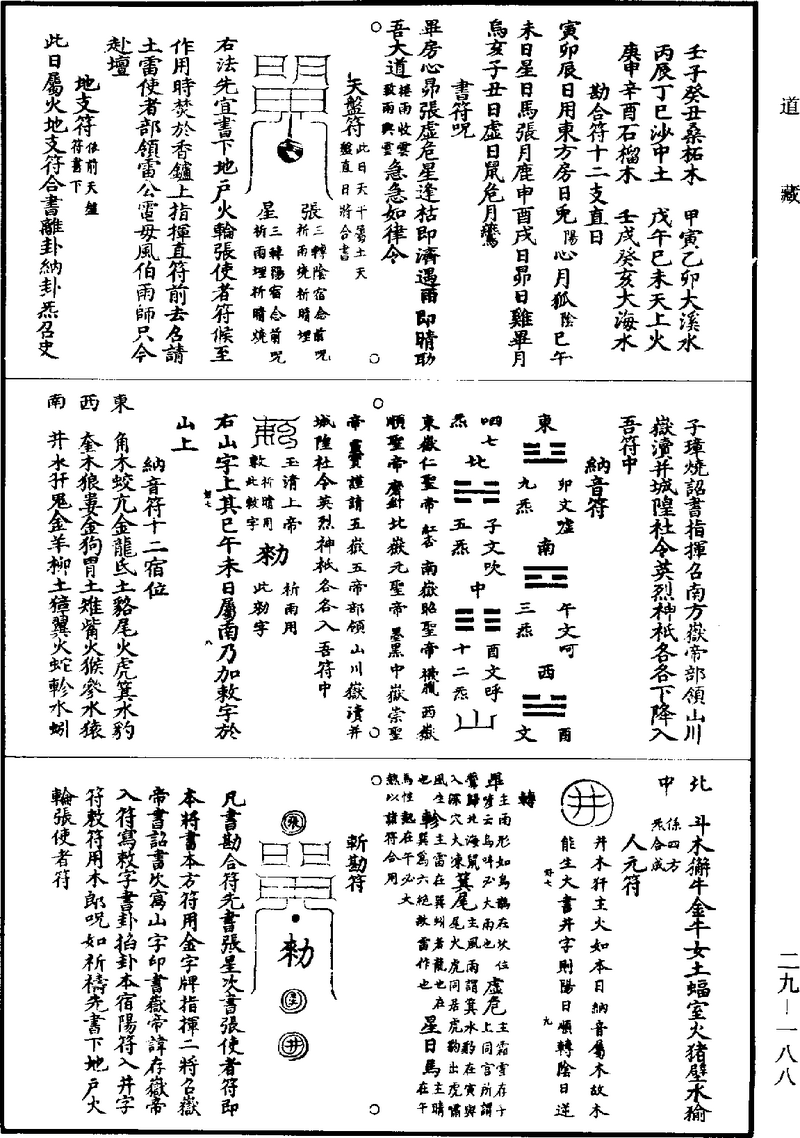 道藏
壬子癸丑桑柘木　甲寅乙卯大溪水
丙辰丁巳沙中土　戊午己未天上火
庚申辛酉石榴木　壬戌癸亥大海水
勘合符十二支直日
寅卯辰日用東方房日兔陽心月狐陰巳午
未日星日馬張月鹿申酉戌日昴日雞畢月
烏亥子丑日虛日鼠危月鷰
書符呪
畢房心昴張虛危星逢枯即濟遇雨即晴助
吾大道捲雨收雲致雨興雲急急如律令
天盤符此日天干屬土天盤直日將合書
張三轉陰宿念前呪祈雨燒祈晴埋
星三轉陽宿念前呪祈雨埋祈晴燒
右法先宜書下地戶火輪張使者符候至
作用時焚於香鑪上指揮直符前去名請
土雷使者部領雷公電母風伯雨師只今
赴壇
地支符依前天盤符書下
此日屬火地支符合書離卦納卦炁召史
子璋燒詔書指揮召南方嶽帝部領山川
嶽瀆并城隍社令英烈神祇各各下降入
吾符中
納音符
東　卯文噓　九炁
南　午文呵　三炁
西　酉文　
呬七炁
北　子文吹　五炁
中　酉文呼　十二炁
山
東嶽仁聖帝　南嶽昭聖帝　西嶽
順聖帝　北嶽元聖帝　中嶽崇聖
帝　謹請五嶽五帝部領山川嶽瀆并
城隍社令英烈神祇各各入吾符中
玉清上帝　祈晴用此敕字
敕　祈雨用此勑字
右山字上其巳午未日屬南乃加敕字於
山上
納音符十二宿位
東　角木蛟亢金龍氐土貉尾火虎箕水豹
西　奎木狼婁金狗胃土雉觜火猴參水猿
南　井水犴鬼金羊柳土獐翼火蛇軫水蚓
北　斗木獬牛金牛女土蝠室火猪壁水㺄
中　係四方炁合成
人元符
井
井木犴主火如本日納音屬木故木
能生火書井字則陽日順轉陰日逆
轉
畢主雨形如烏鵲在坎位
虛危主霜雪在子上同宮所謂
箕尾主風雨謂箕水豹在寅與
尾火虎同居虎豹出虎嘯
風生
軫主雷在巽
星日馬主晴在午
斬勘符
張
勑
井
凡書勘合符先書張星次書張使者符即
本將書本方符用金字牌指揮二將召嶽
帝書詔書次寫山字印書嶽帝諱存嶽帝
入符寫敕字書卦掐卦本宿陽符入井字
符敕符用木郎呪如祈禱先書下地戶火
輪張使者符
二九－一八八